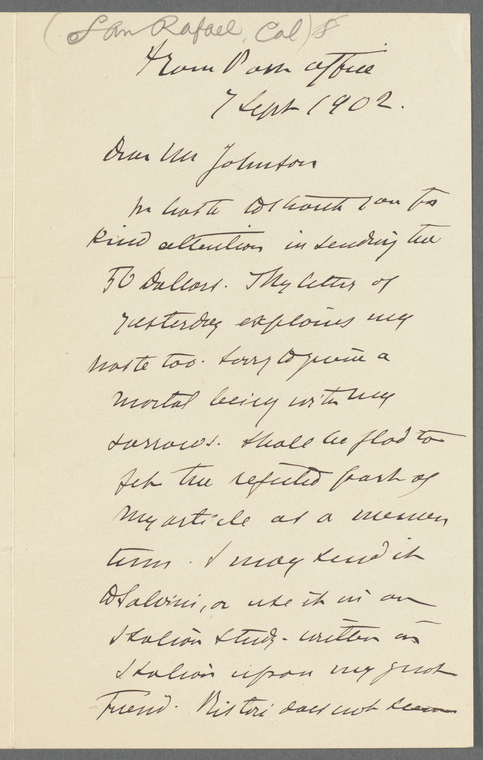 (San Rafael, Cal) 8
From Post office
7 Sept 1902.
Dear Mr Johnson
In haste to thank you for
kind attention in sending the
50 Dollars. My letter of
yesterday explains my
haste too. Sorry to grieve a
mortal being with my
sorrows. Shall be glad to
get the rejected part of
my article as a memen
tum. I may send it
to Salvini, or use it in an
Italian study - written in
Italian upon my great
Friend. Ristori does not seem